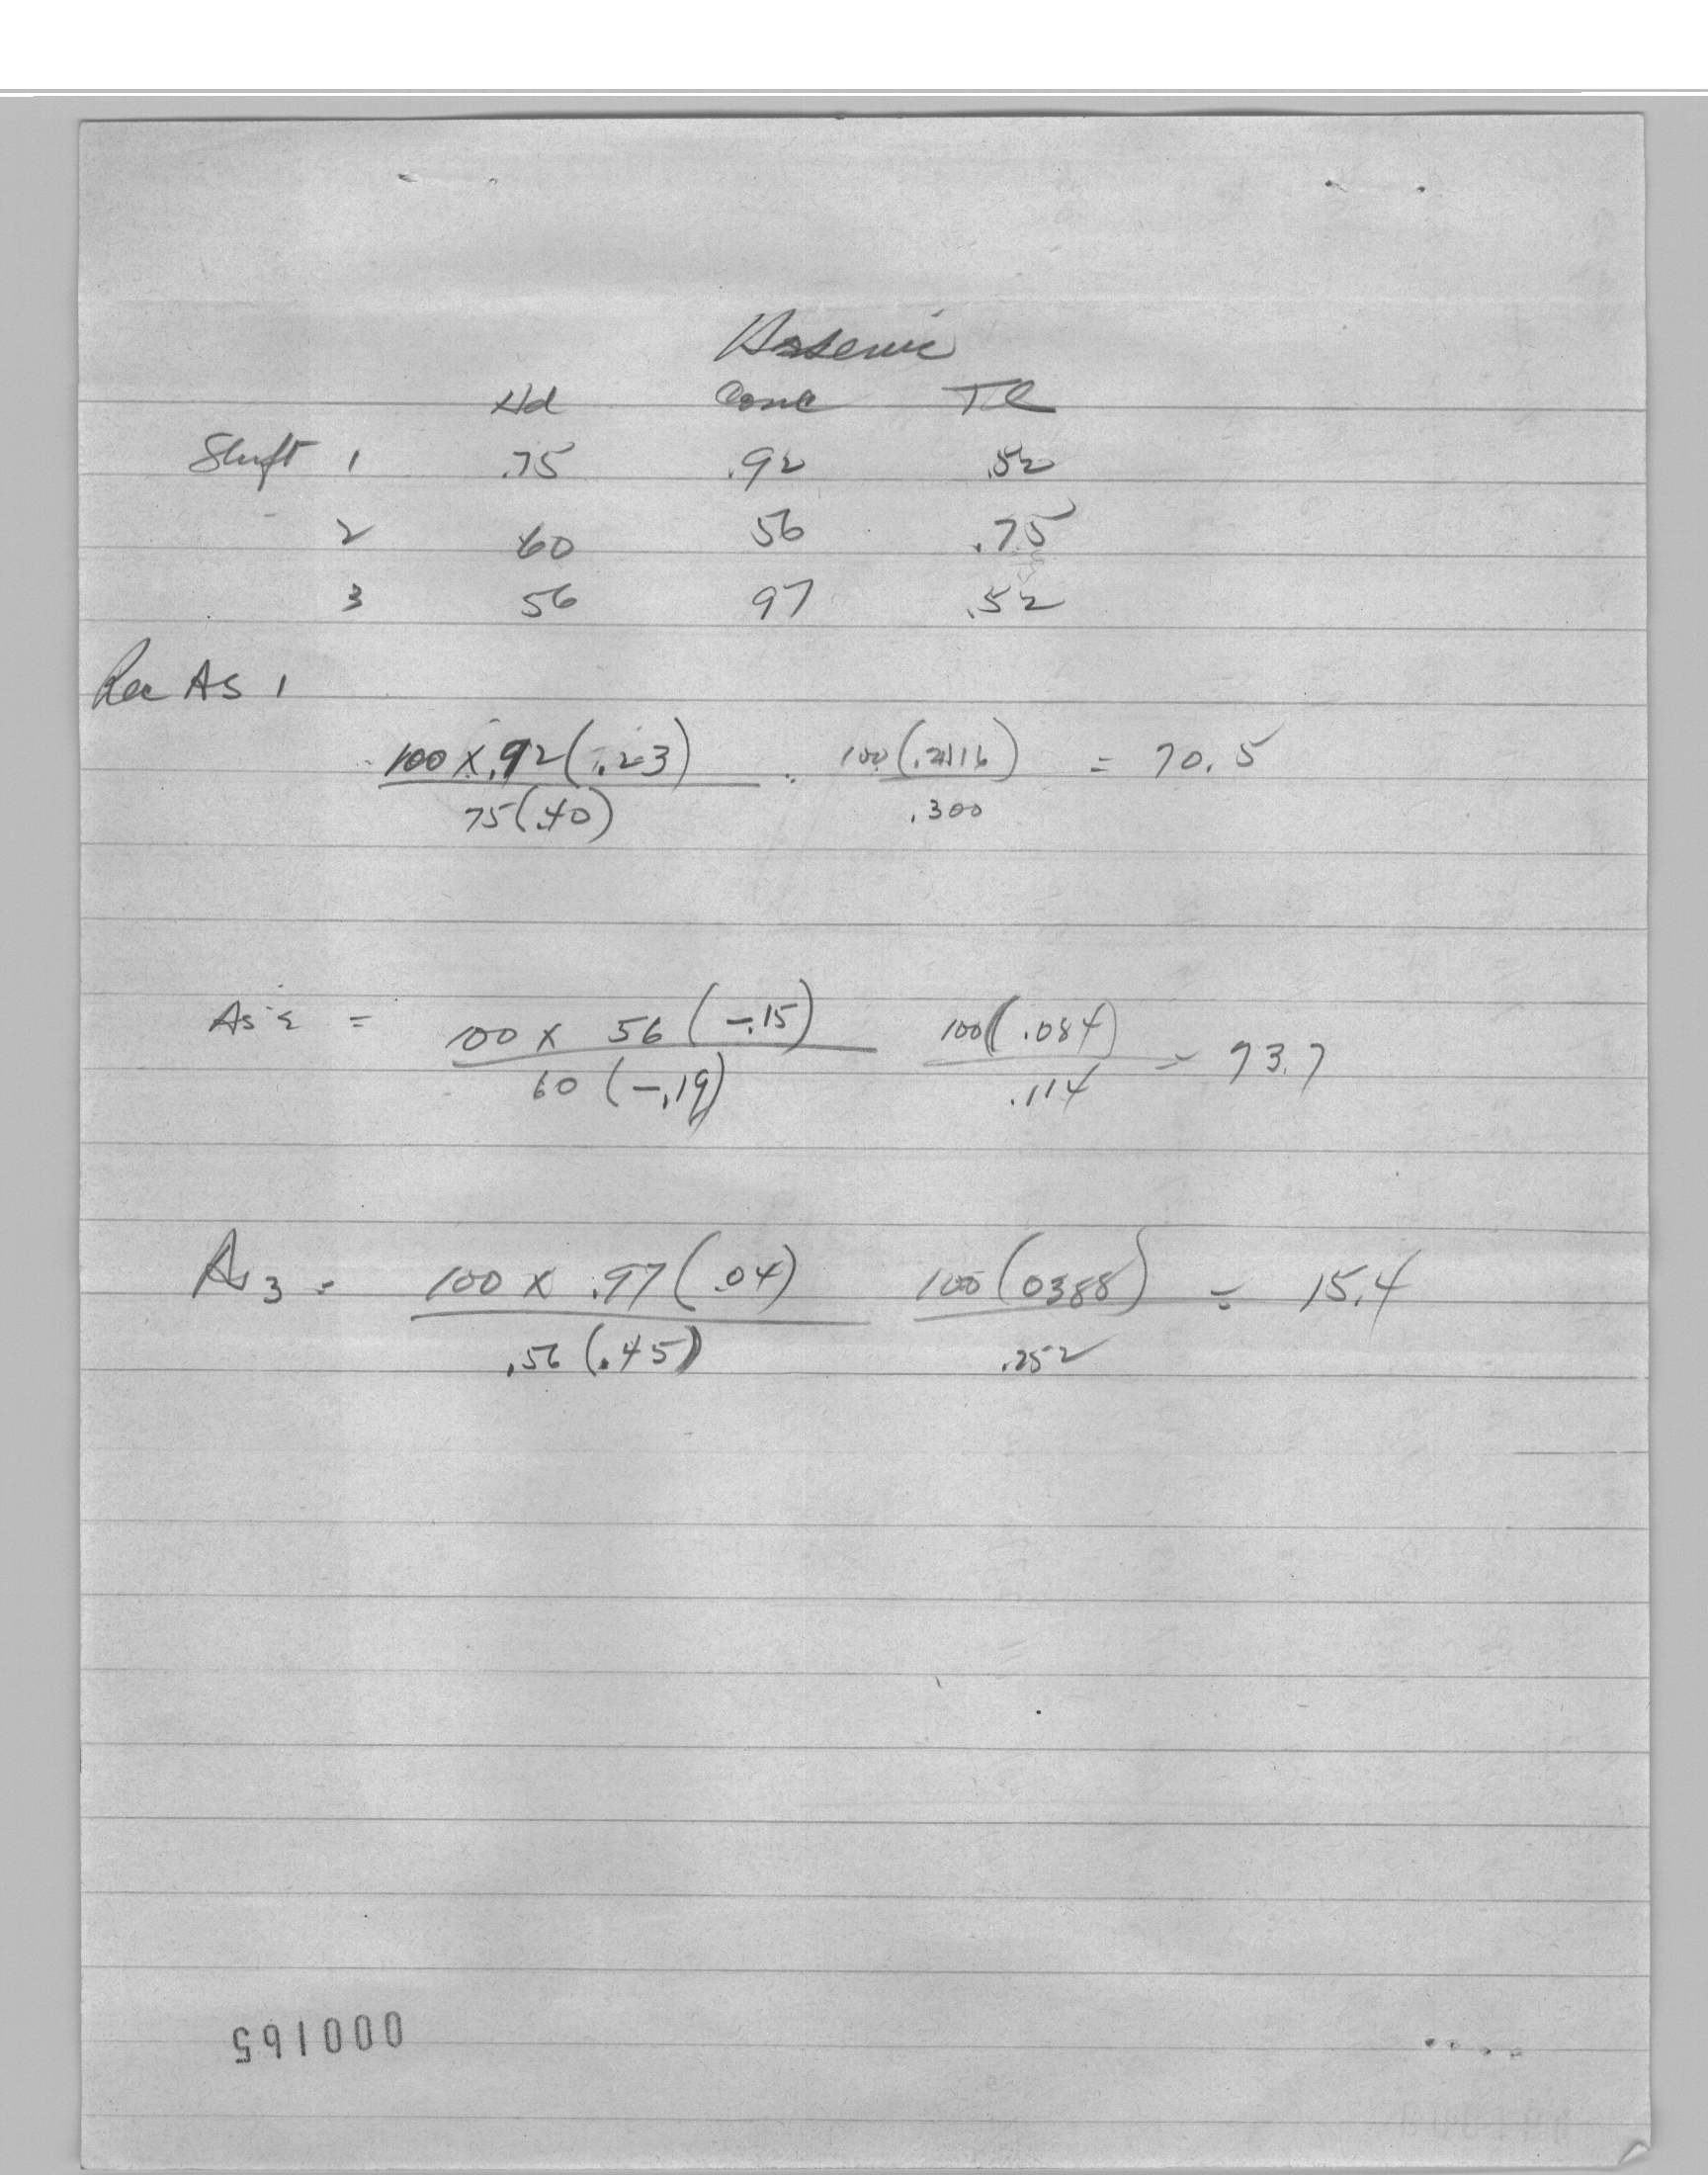 Arsenic
Hd Conc TL
Shift 1 .75 .92 .52
2 60 56 .75
3 56 97 .52
Rec As 1
100 x .92 (.23) 100 (.2116) = 70.5
75 (.40) .300
As 2 = 100 x 56 (-.15) 100 (.084) = 73.7
60 (-.19) .114
As 3 = 100 x .97 (.04) 100 (0388) = 15.4
.56 (.45) .252
000165